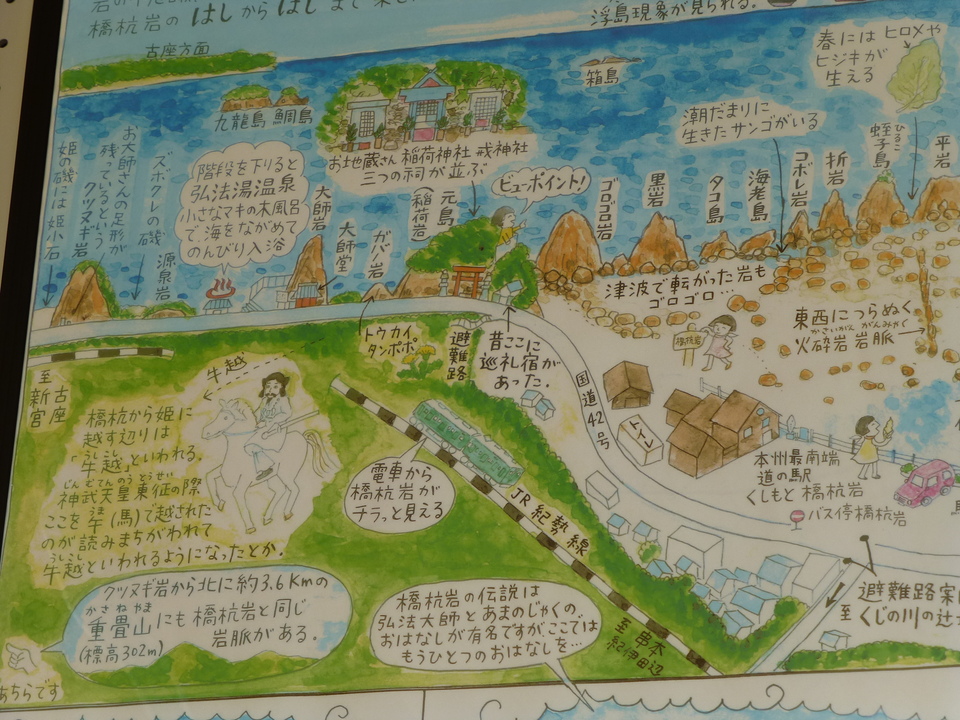 橋杭岩の はしから はしまで
浮島現象が見られる。
古座方面
九龍島
鯛島
箱島
春には ヒロメや
ヒジキが
生える
潮だまりに
生きたサンゴがいる
お地蔵さん 稲荷神社 戎神社
三つの祠が並ぶ
ビューポイント!
姫の磯には姫小岩
お大師さんの足形が
残っているという
クツヌギ岩
ズボクレの磯
源泉岩
階段を下りると
弘法湯温泉
小さなマキの木風呂
で、海をながめて
のんびり入浴
大師岩
大師堂
ガバ岩
元島
(稲荷岩)
ゴロゴロ岩
黒岩
タコ島
海老島
コボレ岩
折岩
ひるこ
蛭子島
平岩
津波で転がった岩も
ゴロゴロ…
東西につらぬく
かさいがん がんみゃく
火砕岩岩脈
トウカイ
タンポポ
避難路
昔ここに
巡礼宿が
あった。
橋杭岩
国道42号
トイレ
本州最南端
道の駅
くしもと 橋杭岩
バス停橋杭岩
至
新宮
古座
牛越
橋杭から姫に
越す辺りは
うしごし
「牛越」といわれる。
じんむてんのうとうせい
神武天皇東征の際
うま
ここを午(馬)で越された
のが読みまちがわれて
うしごし
牛越といわれるようになったとか。
電車から
橋杭岩が
チラっと見える
JR紀勢線
クツヌギ岩から北に約3.6Kmの
かさねやま
重畳山にも橋杭岩と同じ
(標高302m) 岩脈がある。
あちらです
橋杭岩の伝説は
弘法大師とあまのじゃくの、
おはなしが有名ですが、ここでは
もうひとつのおはなしを…
至 串本
紀伊田辺
避難路案
至 くじの川の辻